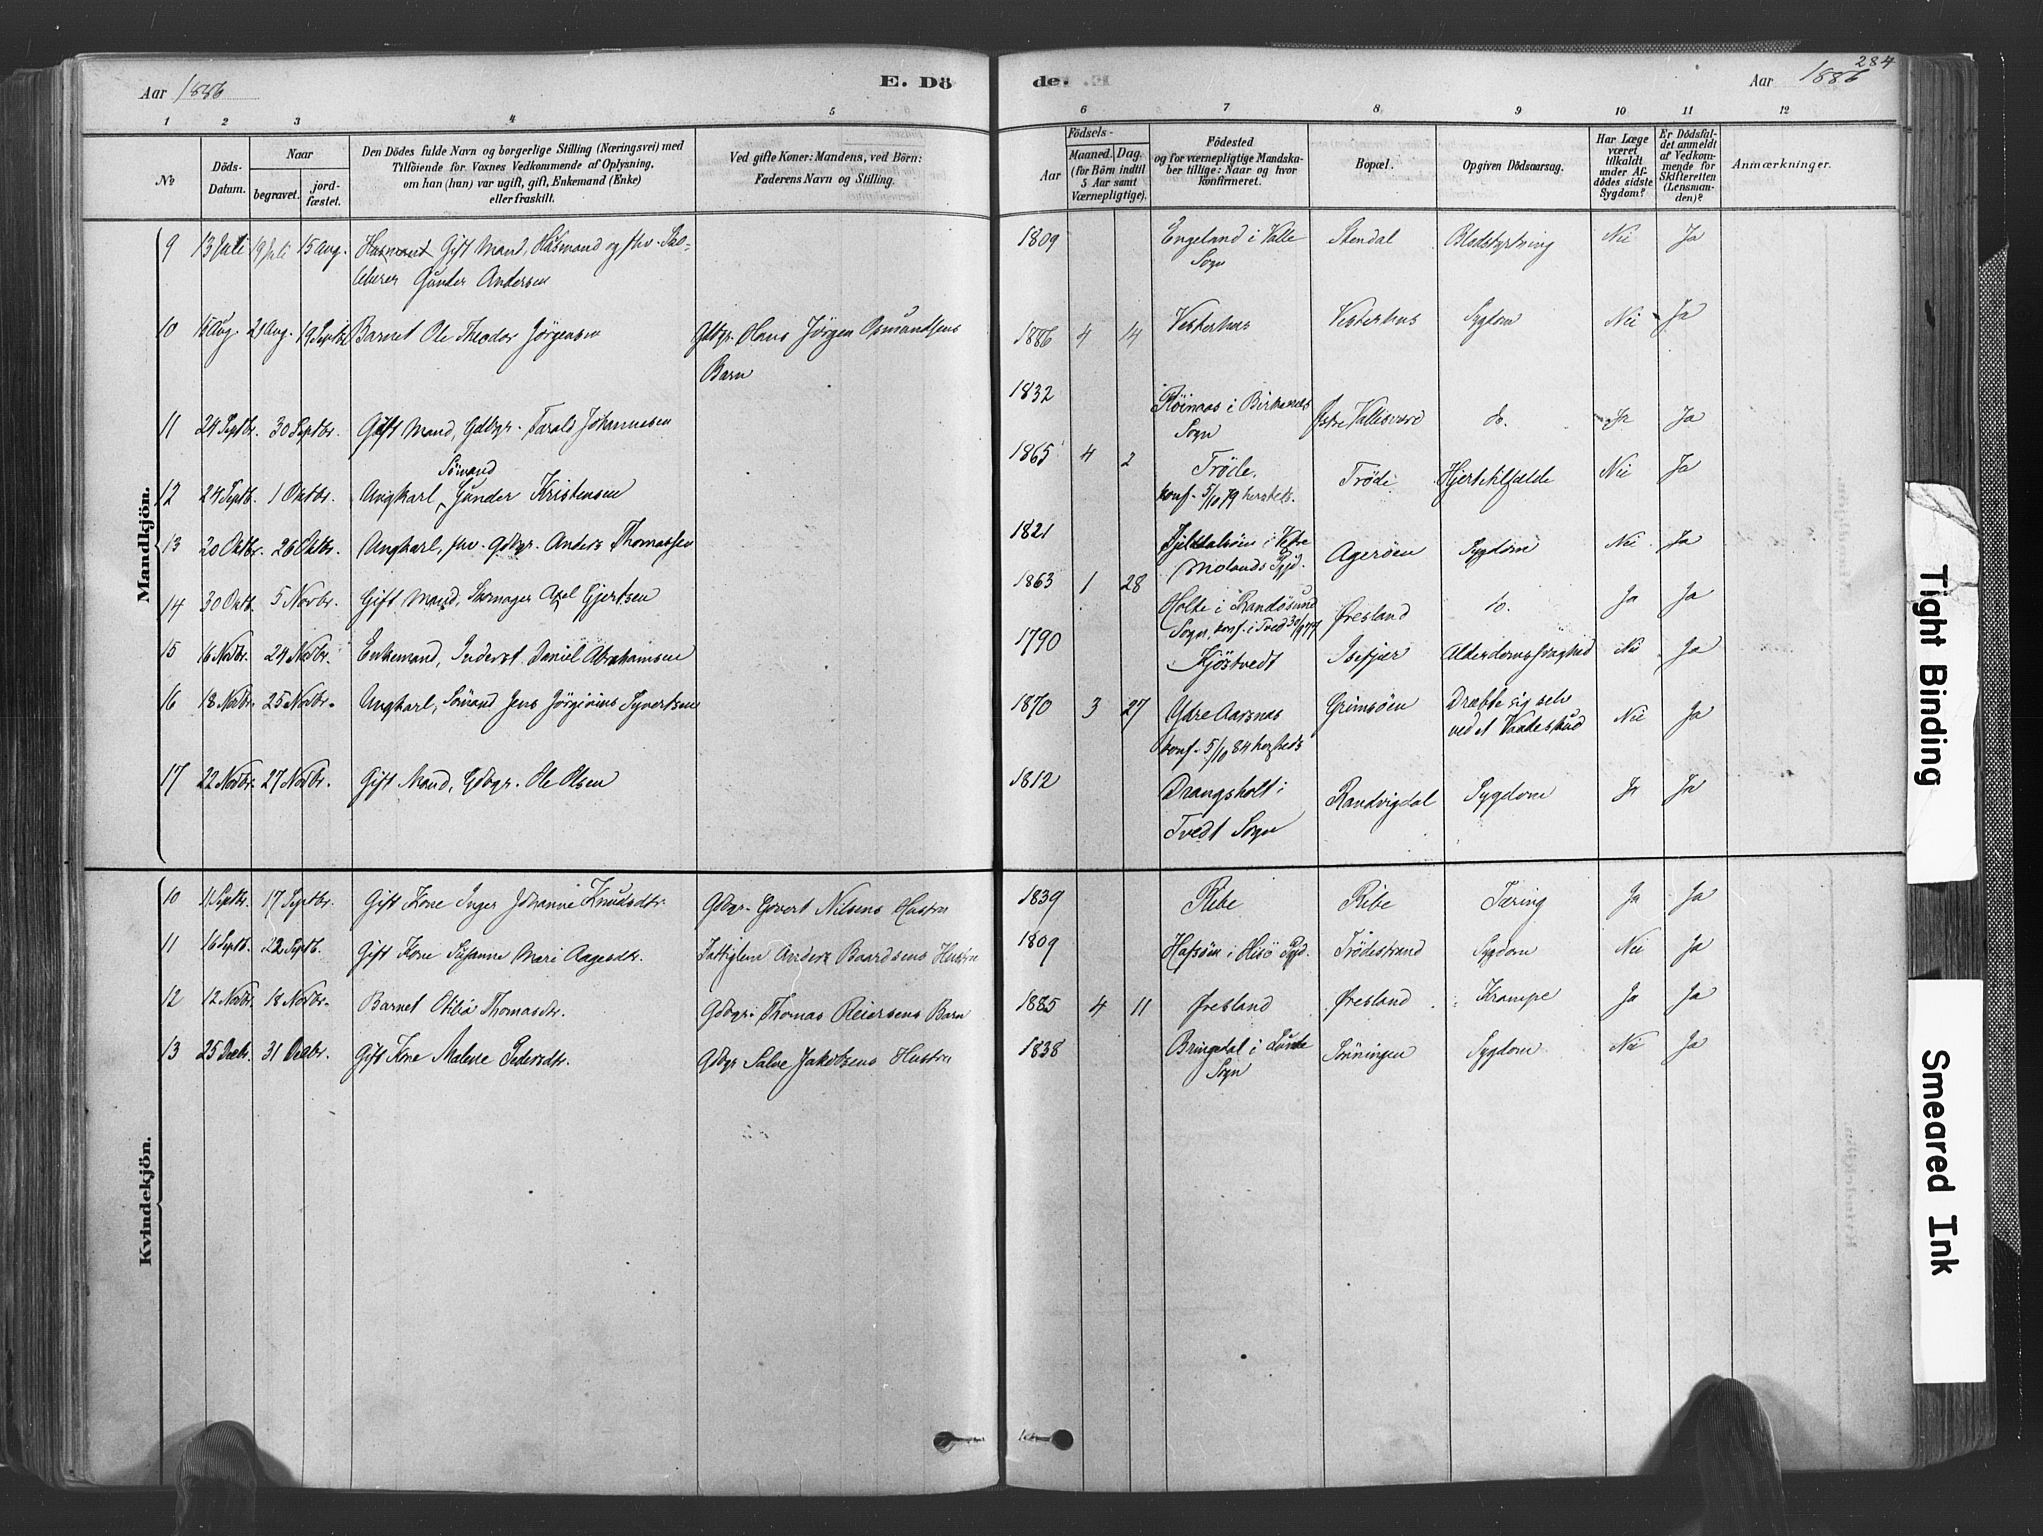 284
Aar 1886
E. Döde.
Aar 1886
1 2 3 4 5 6 7 8 9 10 11 12
No
Döds-Datum.
Naar
begravet.
jord-fæstet.
Den Dödes fulde Navn og borgerlige Stilling (Næringsvei) med
Tilföiende for Voxnes Vedkommende af Oplysning,
om han (hun) var ugift, gift, Enkemand (Enke)
eller fraskilt.
Ved gifte Koner: Mandens, ved Börn:
Faderens Navn og Stilling.
Födsels-
Aar
Maaned. Dag.
(for Börn indtil
5 Aar samt
Værnepligtige).
Födested
og for værnepligtige Mandska-
ber tillige: Naar og hvor
konfirmeret.
Bopæl.
Opgiven Dödsaarsag.
Har Læge
været
tilkaldt
under Af-
dödes sidste
Sygdom?
Er Dödsfal-
det anmeldt
af Vedkom-
mende for
Skifteretten
(Lensman-
den)?
Anmærkninger.
Mandkjön.
9 13 Juli 19 Juli 15 Aug. Gift Mand, Husmand og fhv.
Gunder Andersen
1809 Engeland i Valle Stendal Blodstyrtning Nei Ja
Sogn
10 21 Aug. 19 Septbr Barnet Ole Theodor Jörgensen Gdbgr. Hans Jörgen Osmundsens
Barn
1886 4 14 Vesterhus Vesterhus Sygdom Nei Ja
11 24 Septbr. 30 Septbr. Gift Mand, Gdbgr. Tarald Johannesen
1832 i Birkenes Östre Vallesverd do. Ja Ja
Sogn
Sömand
12 24 Septb. 1 Oktbr. Ungkarl, Gunder Kristensen
1865 4 2 Tröde. Tröde Hjertetilfælde Nei Ja
konf. 5/10 79 hersteds.
13 20 Oktbr. 26 Oktbr. Ungkarl, fhv. Gdbgr. Anders Thomassen
1821 i Vestre Ageröen Sygdom Nei Ja
Molands Pgjd.
14 30 Oktb. 5 Novbr. Gift Mand, Axel Gjertsen
1863 1 28 Holte i Randösund Øresland do. Ja Ja
Sogn, konf. i Tved 30/9 77
15 16 Novbr. 24 Novbr. Enkemand, Inderst Daniel Abrahamsen
1790 Kjöstvedt Isefjær Alderdomssvaghed Nei Ja
16 18 Novbr. 25 Novbr. Ungkarl, Sömand Jens Jörginius Syvertsen
1870 3 27 Ydre Aarsnes Grimsöen Dræbte sig selv Nei Ja
konf. 5/10 84 hersteds ved et Vaadeskud
17 22 Novbr. 27 Novbr. Gift Mand, Gdbgr. Ole Olsen
1812 Drangsholt i Randvigdal Sygdom Ja Ja
Tvedt Sogn
Kvindekjön.
10 11 Septbr. 17 Septbr. Gift Kone Inger Johanne Knudsdtr. Gdbgr. Govert Nilsens Hustru
1839 Ribe Ribe Tæring Ja Ja
11 16 Septb. 22 Septb. Gift Kone Susanne Mari Aagesdtr. Fattiglem Anders Baardsens Hustru
1809 Hafsöen i Hisö Pgjd. Trödestrand Sygdom Nei Ja
12 12 Novbr. 18 Novbr. Barnet Otilia Thomasdtr. Gdbgr. Thomas Reiersens Barn
1885 4 11 Øresland Øresland Krampe Ja Ja
13 25 Decbr. 31 Decbr. Gift Kone Malene Pedersdtr. Gdbgr Salve Jakobsens Hustru
1838 Bringedal i Lunde Sönningen Sygdom Nei Ja
Sogn
Tight Binding
Smeared Ink